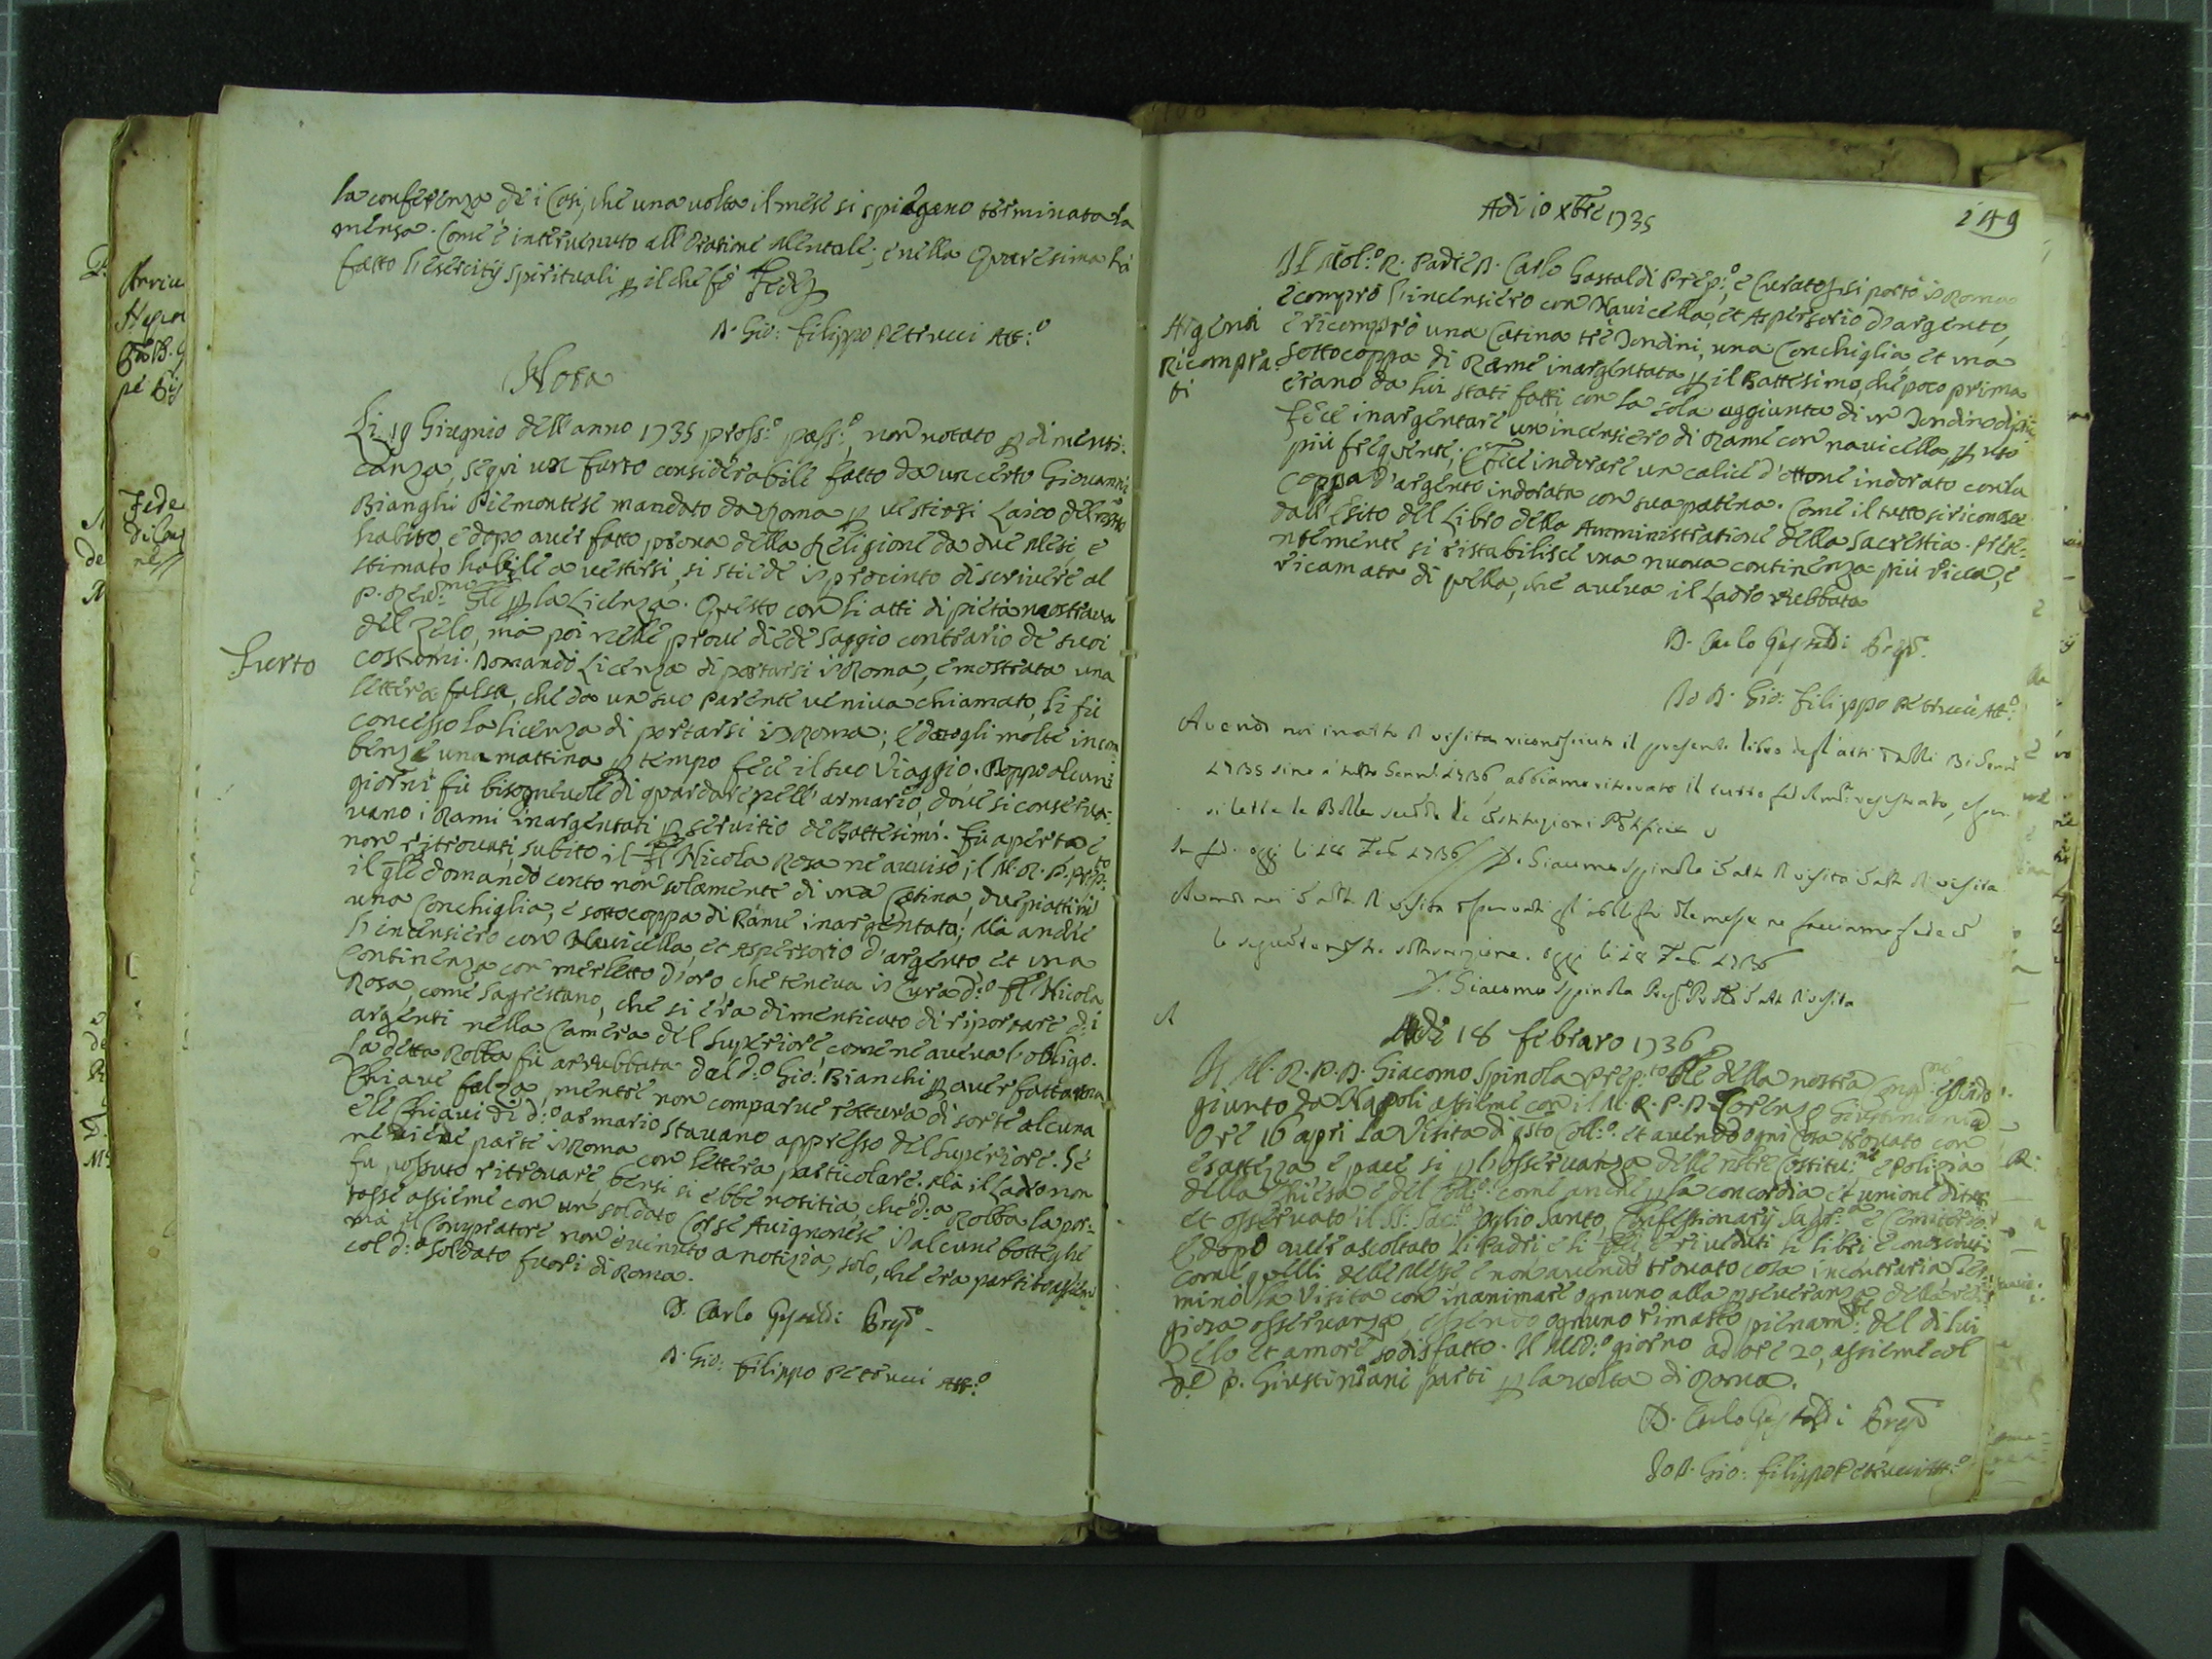 la conferenza de i Casi, che una volta il mese si spiegano terminata la
mensa. Come è intervenuto all'Oratione Mentale; e nella Quaresima hà
fatto l'esercitij Spirituali p il che fè Fede
D. Gio: Filippo Petrucci Att:o
Nota
Li 19 Giugnio dell'anno 1735 pross:o pass:o, non notato p dimenti:
canza, seguì un furto considerabile fatto da un certo Giovanni
Bianghi Piemontese mandato da Roma p vestirsi Laico del nro
habito, e dopo aver fatto prova della Religione da due Mesi, e
stimato habile a vestirsi, si stiede in procinto di scrivere al
P. Rev:mo Gle p la Licenza. Questo con li atti di pietà mostrava
del zelo, mà poi nelle prove diede saggio contrario de suoi
costumi. Domandò Licenza di portarsi in Roma, e mostrata una
Furto
lettera falsa, che da un suo Parente veniva chiamato, li fù
concesso la licenza di portarsi in Roma; e datogli molte incom
benze una mattina p tempo fece il suo Viaggio. Doppo alcuni
giorni fù bisognevole di guardare nell'armario, dove si conserva:
vano i Rami inargentati p servitio de Battesimi. Fù aperta e
non ritrovati, subito il Fl Nicola Rosa ne avvisò il M. R. P. Prep:to
il qle domandò conto non solamente di una Catina, due piattini
una Conchiglia, e sottocoppa di Rame inargentata; Mà anche
l'incensiero con Navicella, et Aspersorio d'argento et una
Continenza con merletto d'oro che teneva in Cura d:o Fl Nicola
Rosa, come Sagrestano, che si era dimenticato di riportare d:i
argenti nella Camera del Superiore, come ne aveva l'obligo.
La detta Robba fù arrubbata dal d:o Gio: Bianchi p aver fatta una
Chiave falza, mentre non comparve rottura di sorte alcuna
e le Chiavi di d:o armario stavano appresso del Superiore. Se
ne diede parte in Roma con lettera particolare. Mà il Ladro non
fu possuto ritrovare, bensi si ebbe notitia, che d:a Robba la por:
tasse assieme con un soldato Corse Avignonese in alcune botteghe
mà il Compratore non è venuto a notizia, solo, che era partito assieme
col d:o soldato fuori di Roma.
D. Carlo Gastaldi Prep:o
D. Gio: Filippo Petrucci Att:o
149
Adi 10 Xbre 1735
Il Mol:o R. Padre D. Carlo Gastaldi Prep:o, e Curato si portò in Roma
e comprò l'incensiero con Navicella, et Aspersorio d'argento,
Argenti
Ricompra:
ti
e ricomprò una Catina trè Tondini, una Conchiglia, et una
sottocoppa di Rame inargentata p il Battesimo, che poco prima
erano da lui stati fatti con la sola aggiunta di un Tondino di più
fece inargentare un incensiero di Rame con navicella, p uso
più frequente; E fece indorare un calice d'ottone indorato con la
Coppa d'argento indorata con sua patena. Come il tutto si riconosce
dall'Esito del Libro della Amministratione della Sacrestia. Prese:
ntemente si ristabilisce una nuova continenza più ricca, e
ricamata di quella, che aveva il Ladro rubbata
D. Carlo Gastaldi Prep:o
Io D. Gio: Filippo Petrucci Att:o
Avendo noi in atto di visita riconosciuto il presente libro degl'atti
1735 sino a tutto 1736, abbiamo ritrovato il tutto registrato,
si lette le Bolle secondo le Costituzioni Pontificie
In fede. oggi li 18 Feb. 1736 D. Giacomo Spinola in atto di visita
Avendo noi in atto di visita osservati gl'oblighi delle messe ne facciamo fede
la seguente nostra sottoscrizione. oggi li 18 Feb. 1736
D. Giacomo Spinola in atto di visita
Adi 18 Febraro 1736
Il M. R. P. D. Giacomo Spinola Prep:to Gle della nostra Cong:ne essendo
giunto da Napoli assieme con il M. R. P. D. Lorenzo Giustiniani ad
Ore 16 aprì la Visita di qsto Coll:o. et avendo ogni cosa trovato con
esattezza e pace si p l'osservanza delle nostre Costitu:ne e Polizia
della Chiesa e del Coll:o come anche p la concordia et unione di tutti
et osservato il SS: Sac:to oglio Santo, Confessionarij Sagr:a e Cemiterio
E dopo aver ascoltato li Padri e li Flli, e riveduti li libri e conosciuti
come quelli delle Messe e non avendo trovato cosa in contraria Ter:
minò la Visita con inanimare ognuno alla pseveranza della reli:
giosa osservanza, essendo ognuno rimasto pienam:te del di lui
Zelo et amore sodisfatto. Il Med:o giorno ad ore 20, assieme col
d:o P. Giustiniani partì p la volta di Roma.
D. Carlo Gastaldi Prep:o
Io D. Gio: Filippo Petrucci Att:o